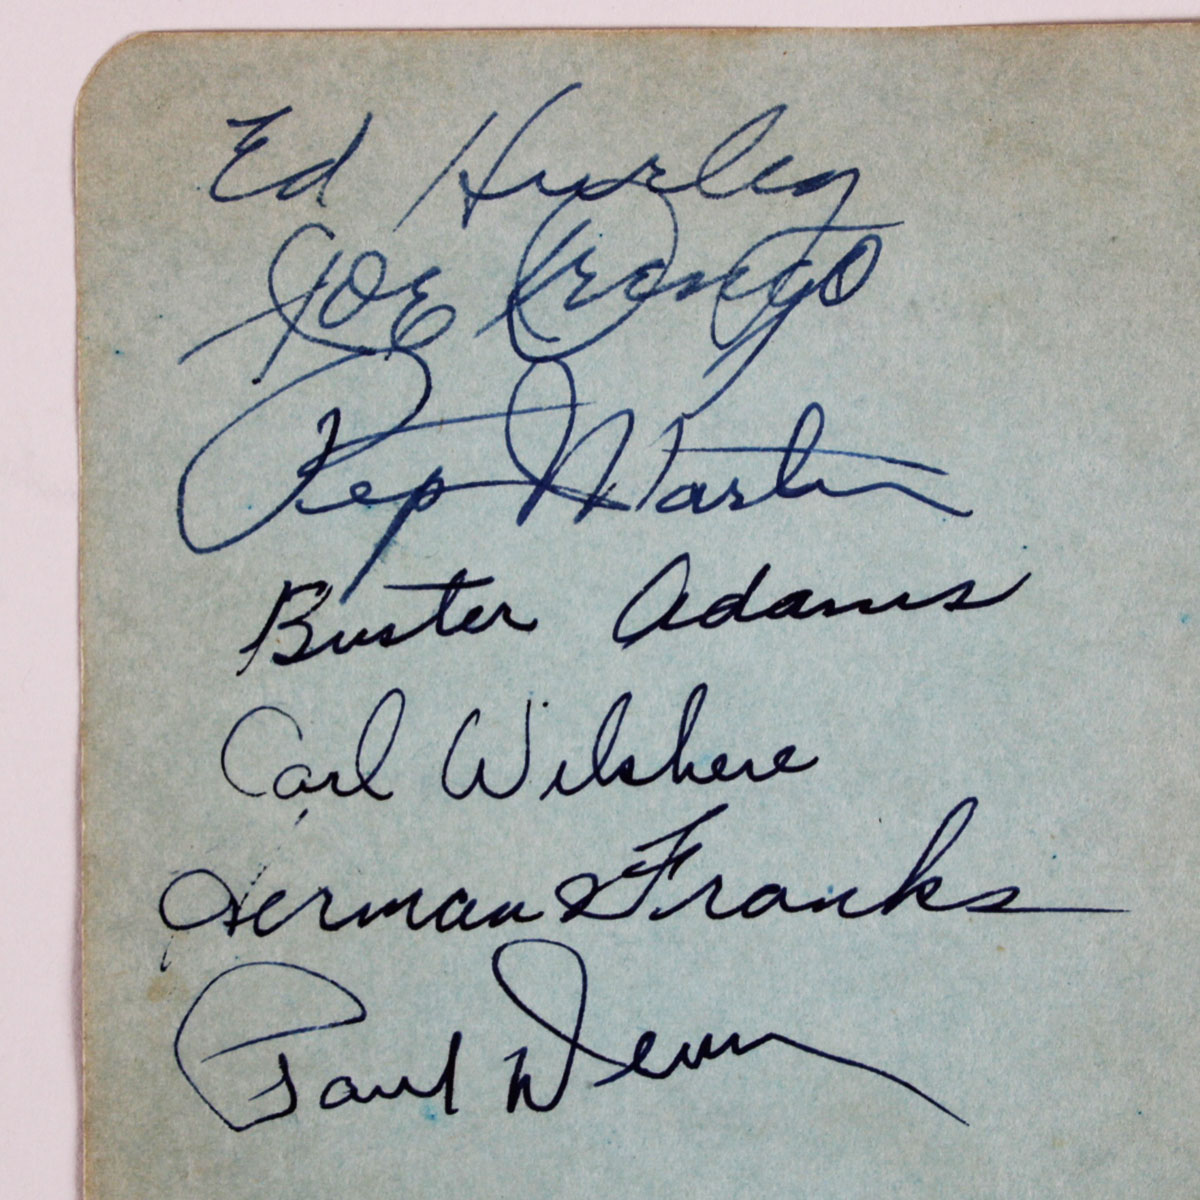 Ed Hurley
Joe Orengo
Pep Martin
Buster Adams
Carl Wilshere
Herman Franks
Paul